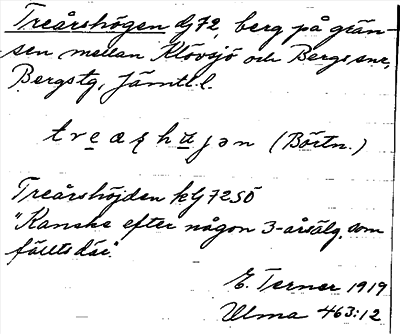 Treårshögen dJ 72, berg på grän-
sen mellan Klövsjö och Bergs snr,
Bergs tg, Jämtl. l.
treaʂhʉjən (Börtn.)
Treårshöjden kG 72 SÖ
"Kanske efter någon 3-årsälg, som
fällts där."
E. Terner 1919
Ulma 463:12